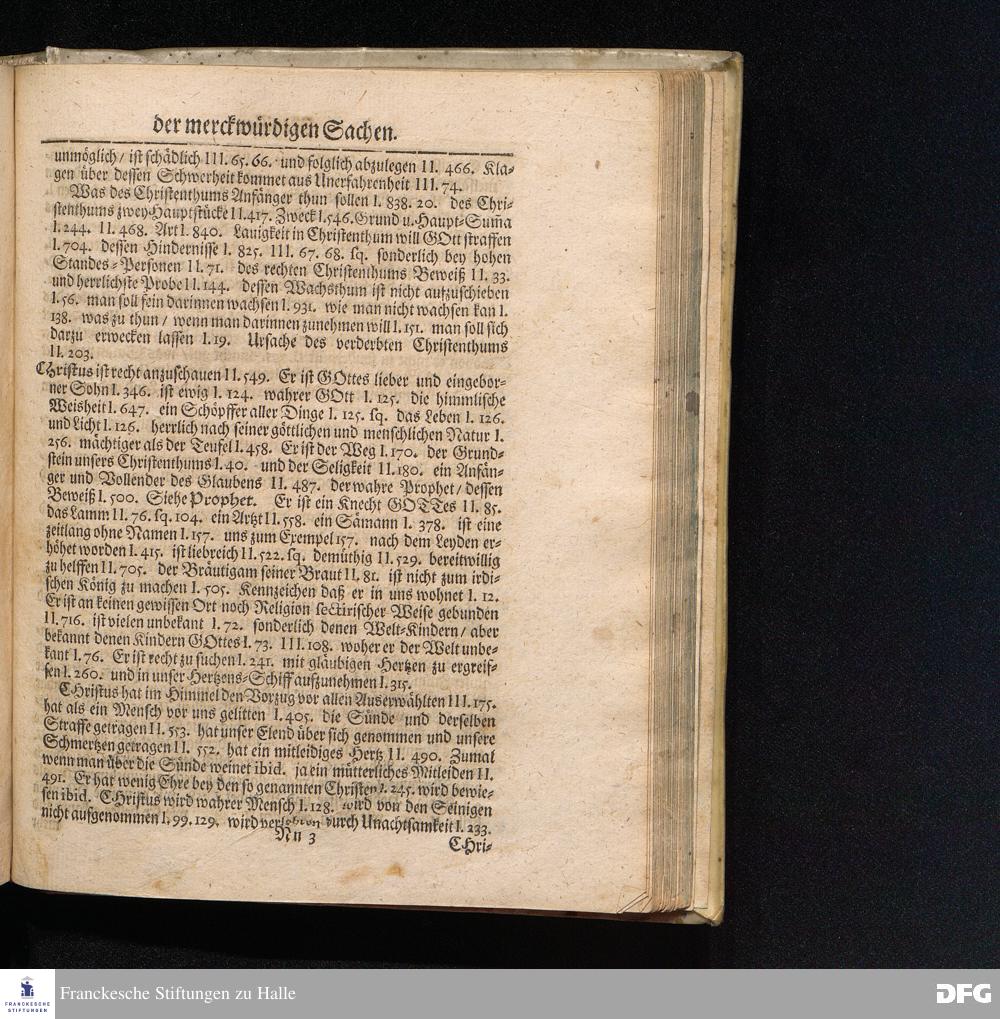 der merckwürdigen Sachen.
unmöglich / ist schädlich III. 65. 66. und folglich abzulegen II. 466. Kla-
gen über dessen Schwerheit kommet aus Unerfahrenheit III. 74.
Was des Christenthums Anfänger thun sollen I. 838. 20. des Chri-
stenthums zwey Hauptstücke II. 417. Zweck I. 546. Grund u. Haupt-Sum̃a
I. 244. II. 468. Art I. 840. Lauigkeit in Christenthum will GOtt straffen
I. 704. dessen Hindernisse I. 825. III. 67. 68. sq. sonderlich bey hohen
Standes-Personen II. 71. des rechten Christenthums Beweiß II. 33.
und herrlichste Probe II. 144. dessen Wachsthum ist nicht aufzuschieben
I. 56. man soll fein darinnen wachsen I. 931. wie man nicht wachsen kan I.
138. was zu thun / wenn man darinnen zunehmen will I. 151. man soll sich
darzu erwecken lassen I. 19. Ursache des verderbten Christenthums
II. 203.
CHristus ist recht anzuschauen II. 549. Er ist GOttes lieber und eingebor-
ner Sohn I. 346. ist ewig I. 124. wahrer GOtt I. 125. die himmlische
Weisheit I. 647. ein Schöpffer aller Dinge I. 125. sq. das Leben I. 126.
und Licht I. 126. herrlich nach seiner göttlichen und menschlichen Natur I.
256. mächtiger als der Teufel I. 458. Er ist der Weg I. 170. der Grund-
stein unsers Christenthums I. 40. und der Seligkeit II. 180. ein Anfän-
ger und Vollender des Glaubens II. 487. der wahre Prophet / dessen
Beweiß I. 500. Siehe Prophet. Er ist ein Knecht GOTTes II. 85.
das Lamm II. 76. sq. 104. ein Artzt II. 558. ein Sämann I. 378. ist eine
zeitlang ohne Namen I. 157. uns zum Exempel 157. nach dem Leyden er-
höhet worden I. 415. ist liebreich II. 522. sq. demüthig II. 529. bereitwillig
zu helffen II. 705. der Bräutigam seiner Braut II. 81. ist nicht zum irdi-
schen König zu machen I. 505. Kennzeichen daß er in uns wohnet I. 12.
Er ist an keinen gewissen Ort noch Religion sectirischer Weise gebunden
II. 716. ist vielen unbekant I. 72. sonderlich denen Welt-Kindern / aber
bekannt denen Kindern GOttes I. 73. III. 108. woher er der Welt unbe-
kant I. 76. Er ist recht zu suchen I. 241. mit gläubigen Hertzen zu ergreif-
fen I. 260. und in unser Hertzens-Schiff aufzunehmen I. 315.
CHristus hat im Himmel den Vorzug vor allen Auserwählten III. 175.
hat als ein Mensch vor uns gelitten I. 405. die Sünde und derselben
Straffe getragen II. 553. hat unser Elend über sich genommen und unsere
Schmertzen getragen II. 552. hat ein mitleidiges Hertz II. 490. Zumal
wenn man über die Sünde weinet ibid. ja ein mütterliches Mitleiden II.
491. Er hat wenig Ehre bey den so genannten Christen I. 245. wird bewie-
sen ibid. CHristus wird wahrer Mensch I. 128. wird von den Seinigen
nicht aufgenommen I. 99. 129. wird verlohren durch Unachtsamkeit I. 233.
Nn 3
CHri-
FRANCKESCHE
STIFTUNGEN
Franckesche Stiftungen zu Halle
DFG